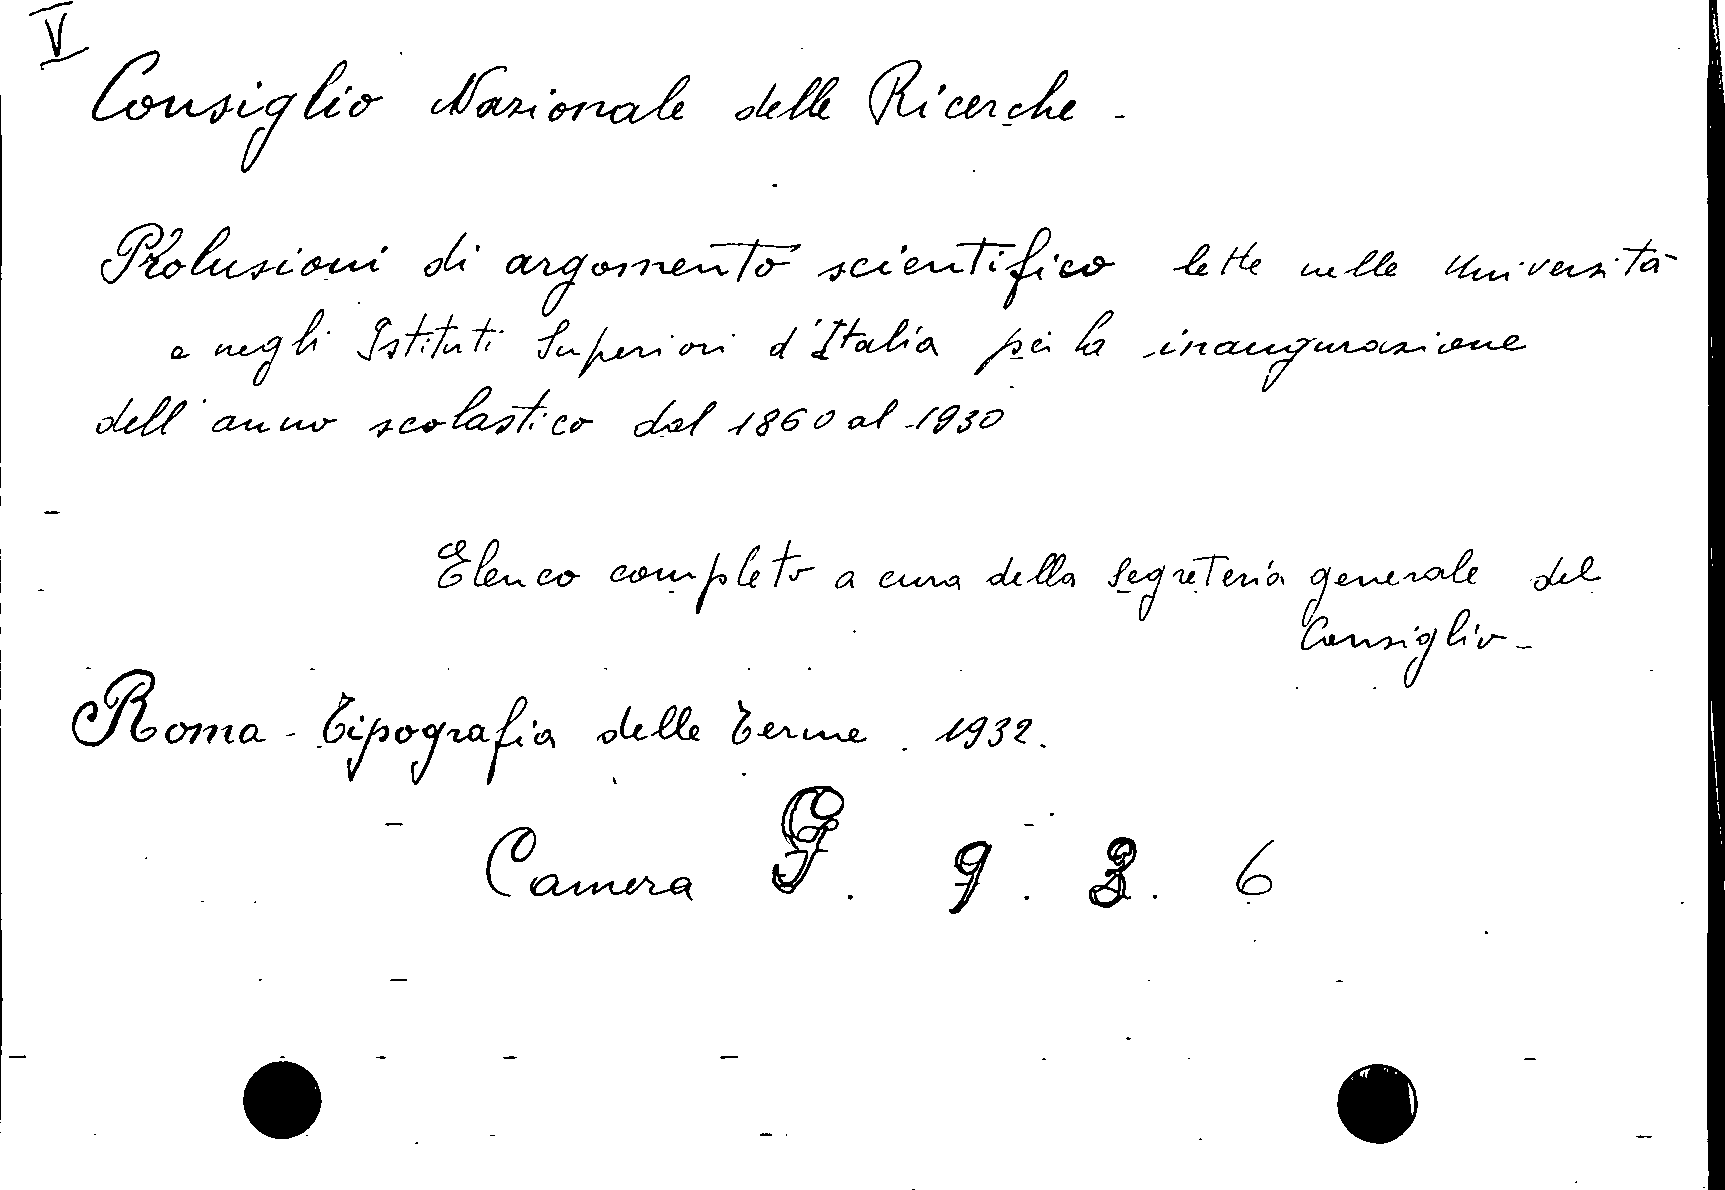 V
Consiglio Nazionale delle Ricerche -
Prolusioni di argomento scientifico lette nelle Università
e negli Istituti Superiori d'Italia per la inaugurazione
dell'anno scolastico dal 1860 al 1930
Elenco completo a cura della Segreteria generale del
Consiglio -
Roma - Tipografia delle Terme . 1932.
Camera G. 9. 3. 6